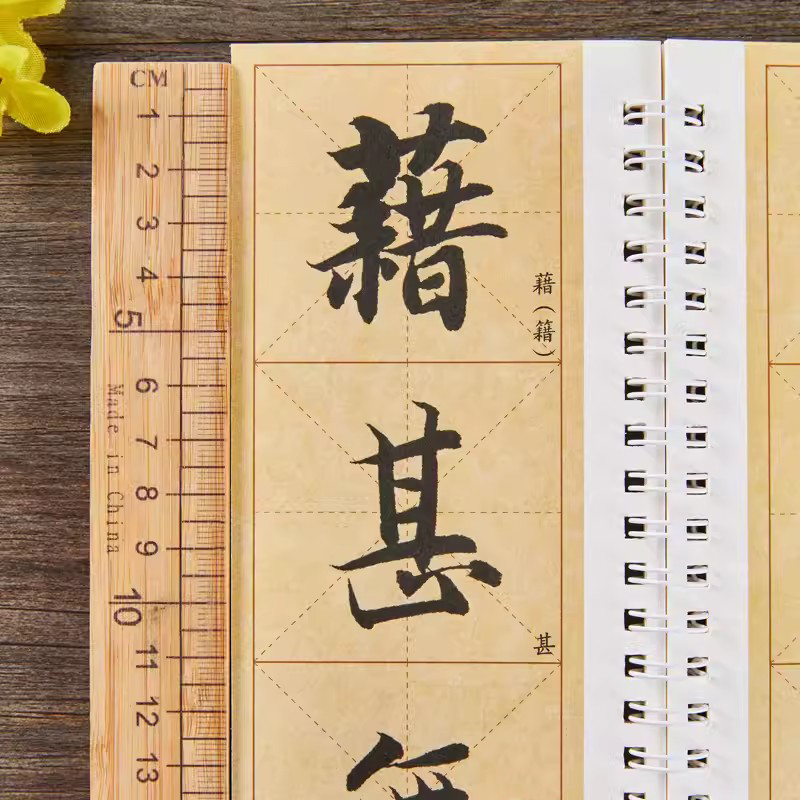 CM
1
2
3
4
5
6
7
8
9
10
11
12
13
Made in China
藉
藉(籍)
甚
甚
無